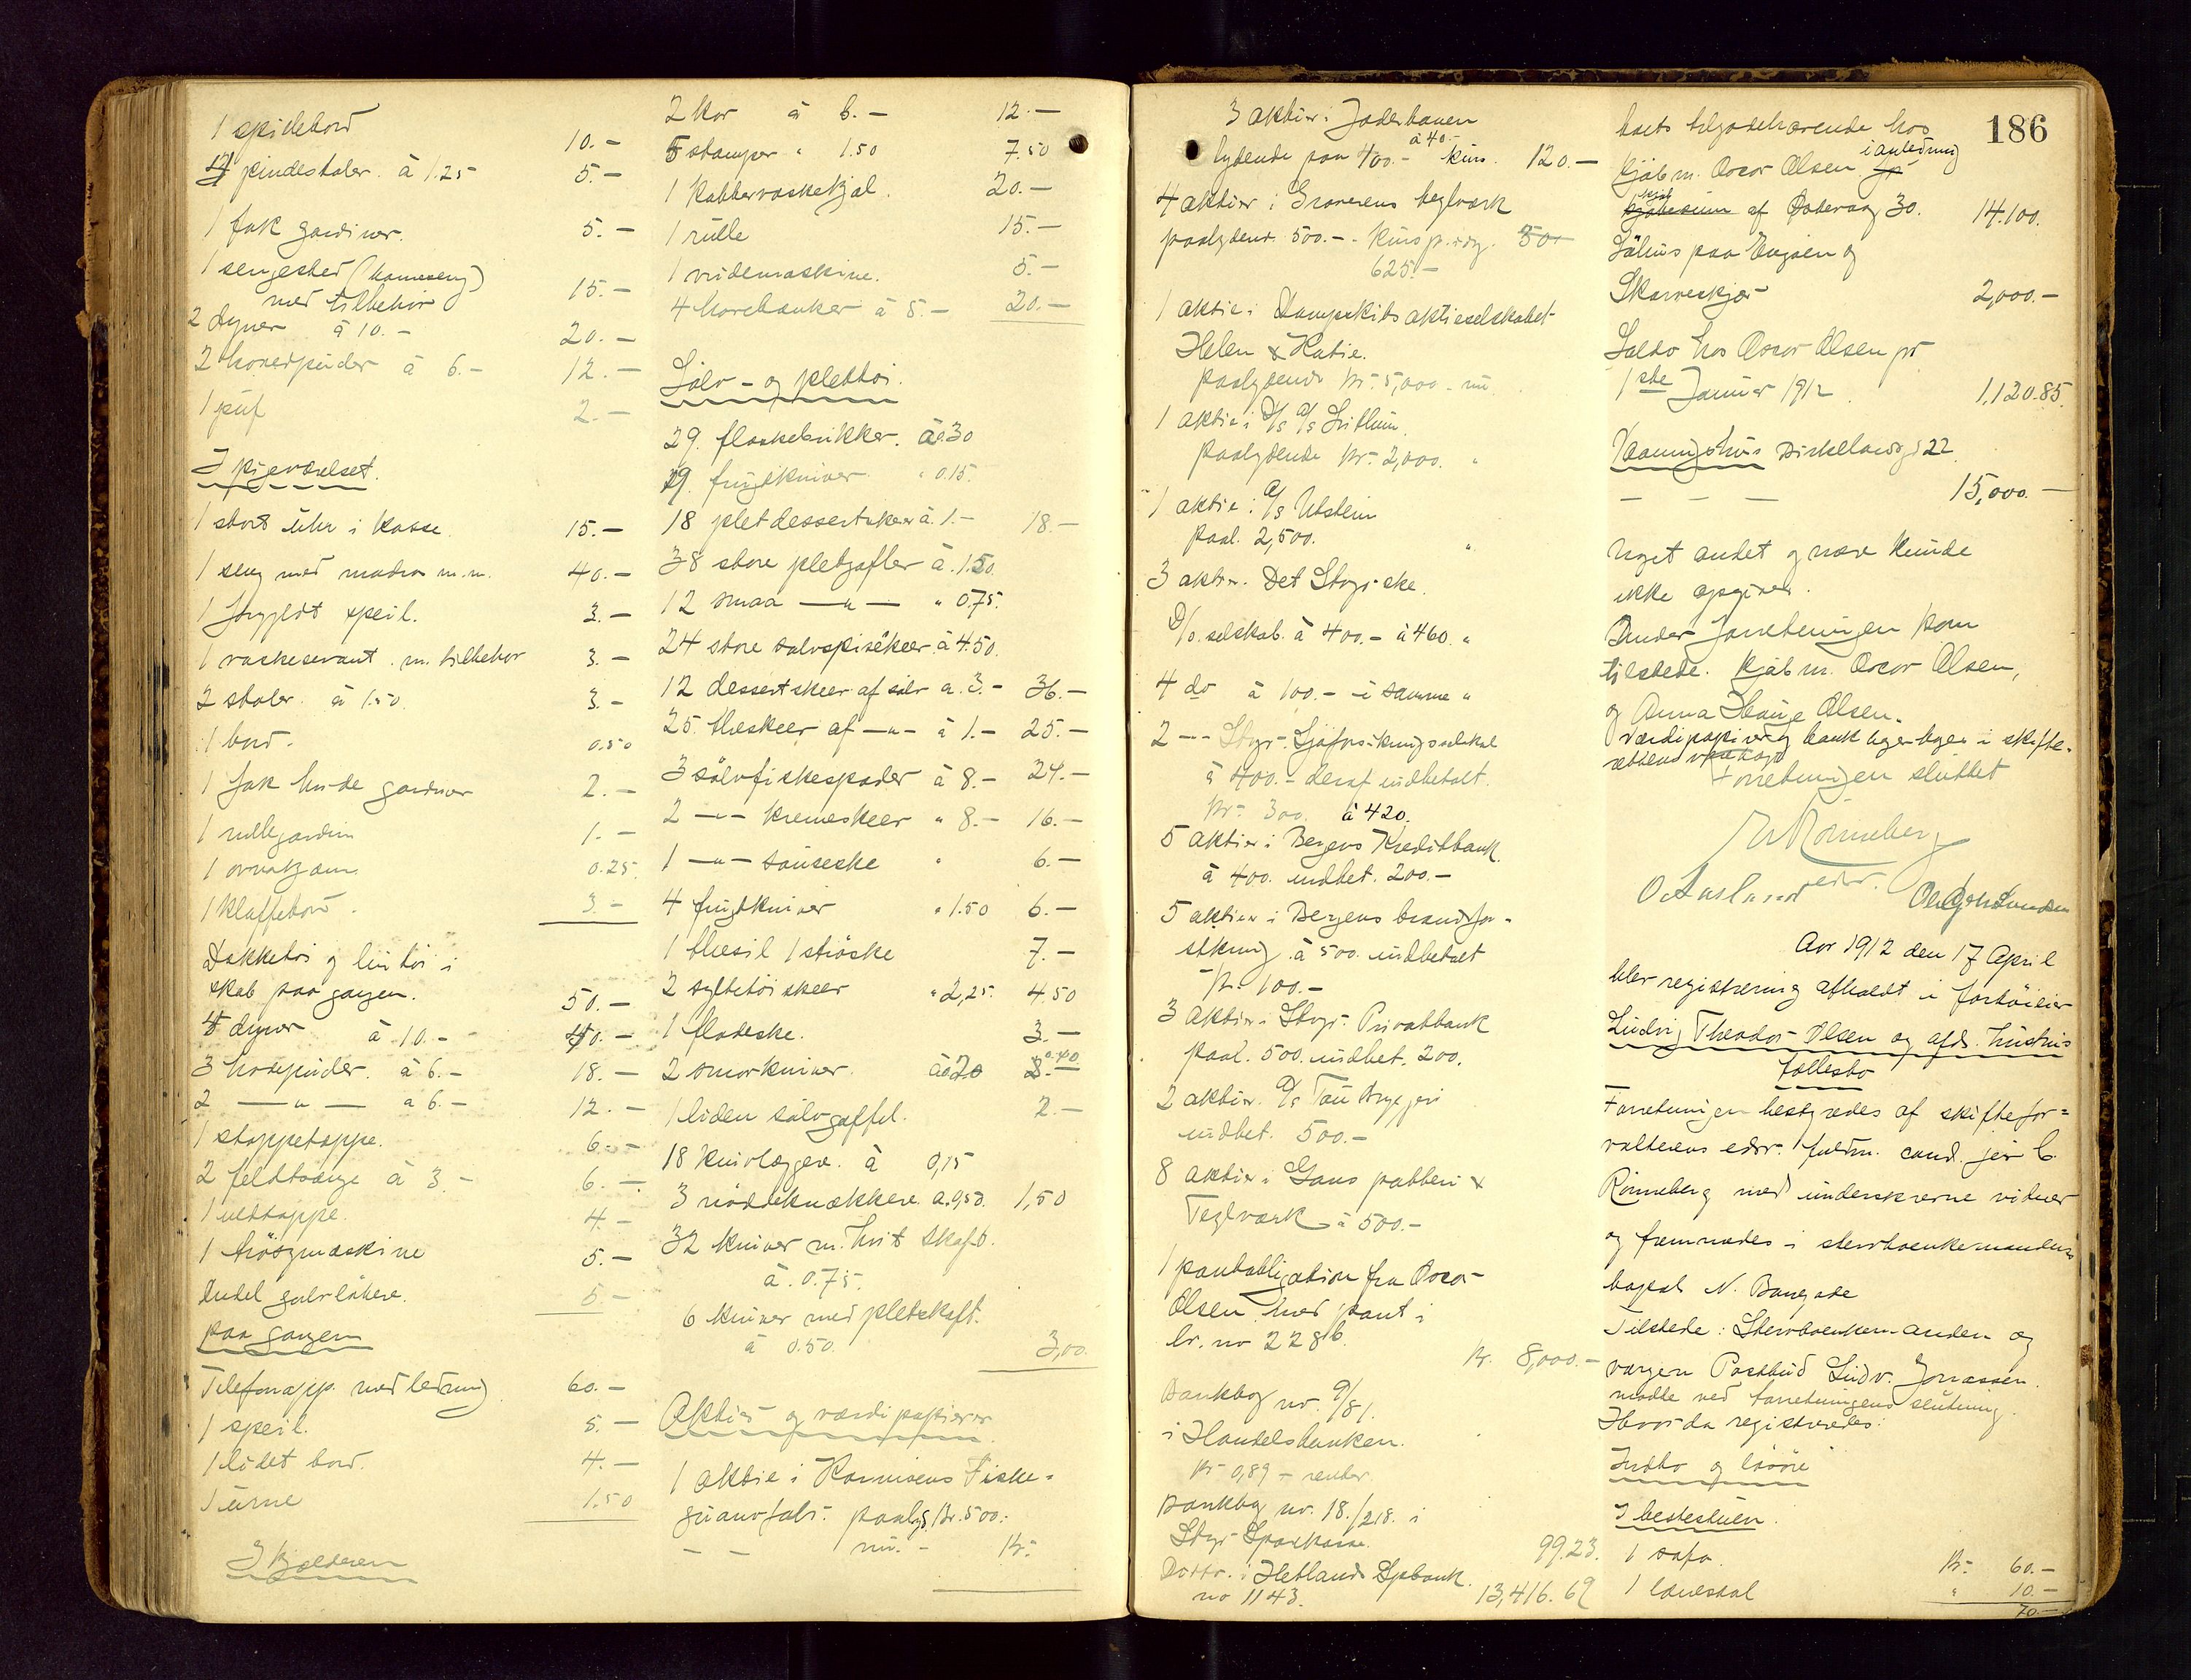 1 spillebord 10.-
4 pindestoler. à 1.25 5.-
1 fak gardiner. 5.-
1 sengested (kameseng)
med tilbehör 15.-
2 dyner à 10.- 20.-
2 hovedpuder à 6.- 12.-
1 puf 2.-
I pigeværelset.
1 stort uhr i kasse. 15.-
1 seng med madras m.m. 40.-
1 forgyldt speil. 3.-
1 vaskeservant. m. tilbehör 3.-
2 stoler. à 1.50 3.-
1 bord. 0.50
1 fak hvide gardiner 2.-
1 rullegardin 1.-
1 0.25
1 klaffebord. 3.-
Dækketöi og lintöi i
skab paa gangen. 50.-
4 dyner à 10.- 40.-
3 hovepuder. à 6.- 18.-
2 —"— à 6.- 12.-
1 stoppetæppe. 6.-
2 feldtsenge à 3.- 6.-
1 uldtæppe. 4.-
1 5.-
Endel gulvlöbere. 5.-
Paa gangen
Telefonapp. med ledning 60.-
1 speil. 5.-
1 lidet bord. 4.-
1 urne 1.50
I kjelderen
2 kar à 6.- 12.-
5 stamper " 1.50 7.50
1 kobbervaskekjel. 20.-
1 rulle 15.-
1 vridemaskine. 5.-
4 havebænker à 5.- 20.-
Sölv- og plettöi.
29. flaskebrikker. à 0.30
19. frugtkniver " 0.15.
18 plet dessertskeer à 1.- 18.-
38 store pletgafler à 1.50.
12 smaa —"— " 0.75.
24 store sölvspiseskeer. à 4.50.
12 dessertskeer af sölv a. 3.- 36.-
25. theskeer af —"— à 1.- 25.-
3 sölvfiskespader à 8.- 24.-
2 -"- kremeskeer " 8.- 16.-
1 —"— sauseske " 6.-
4 frugtkniver " 1.50 6.-
1 thesil 1 ströske 7.-
2 syltetöiskeer " 2,25. 4.50
1 flödeske. 3.-
2 smörkniver. à 0.20 0.40
1 liden sölvgaffel. 2.-
18 knivlæggere. à 0,15
3 nöddeknækkere. a. 0.50. 1,50
32 kniver m. hvit skaft.
à. 0.75.
6 kniver med pletskaft.
à 0.50. 3,00.
Aktier og værdipapirer
1 aktie i Harmsens Fiske-
guanofabr. paalyd. kr. 500.-
— — nu.- kr.
186
3 aktier i Jæderbanen
lydende paa 400.- à 40.- kurs. 120.-
4 aktier i Graverens teglværk
paalydende 500.- kurs p. idag. 500
625.-
1 aktie i Dampskibsaktieselskabet
Helen & Katie.
paalydende kr. 5,000 nu
1 aktie i D/S A/S
paalydende kr. 2,000. "
1 aktie i A/S Utstein
paal. 2,500. "
3 aktier. Det Stvgr. ske
D/S. selskab. à 400.- à 460. "
4 do à 100.- i samme "
2 -- Stvgr. Sjöforsikringsselskab
à 400.- deraf indbetalt.
kr. 300. à 420.
5 aktier i Bergens Kreditbank.
à 400. indbet. 200.-
5 aktier i Bergens brandfor-
sikring à 500. indbetalt
kr. 100.-
3 aktier i Stvgr. Privatbank
paal. 500. indbet. 200.
2 aktier. A/S Tau Bryggeri
indbet. 500.-
8 aktier i Gans potteri &
Teglværk à 500.-
1 pantobligation fra Oscar
Olsen med pant i
br. no 228b. kr. 8,000.-
Bankbog nr. 9/81.
i Handelsbanken.
kr 0,89 + renter.
Bankbog nr. 18./218. i
Stvgr Sparkasse. 99.23.
Ditto. i Hetlands Spbank.
no 1143. 13,416.69
boets tilgodehavende hos
kjöbm. Oscar Olsen i anledning
kjöb af Östervåg 30. 14.100.
Söhus paa Engöen og
Skarveskjær 2,000.-
Saldo hos Oscar Olsen pr
1ste Januar 1912. 1,120.85.
Vaaningshus Dirkelandsgd 22.
— — — 15,000.-
Noget andet at være kunde
ikke opgives.
Under forretningen kom
tilstede. kjöbm. Oscar Olsen,
og Anna Hauge Olsen.
Værdipapirer og bankböger beror i skifte-
rettens
Forretningen sluttet
Rönneberg
edsv.
Aar 1912 den 17 April
blev registrering afholdt i fartöieier
Ludvig Theodor Olsen og afd. hustrus
fællesbo
Forretningen bestyredes af skiftefor-
valterens edsv. fuldm. cand. jur C.
Rönneberg med underskrevne vidner
og fremmødes i sterboenkemandens
bopæl N. Banegade
Tilstede: Sterboenkemanden og
værgen Postbud Ludv. Jonassen
mödte ved forretningens slutning.
Hvorda registreredes:
Indbo og lösöre
I bestestuen.
1 sofa. kr. 60.-
1 lænestol " 10.-
70.-